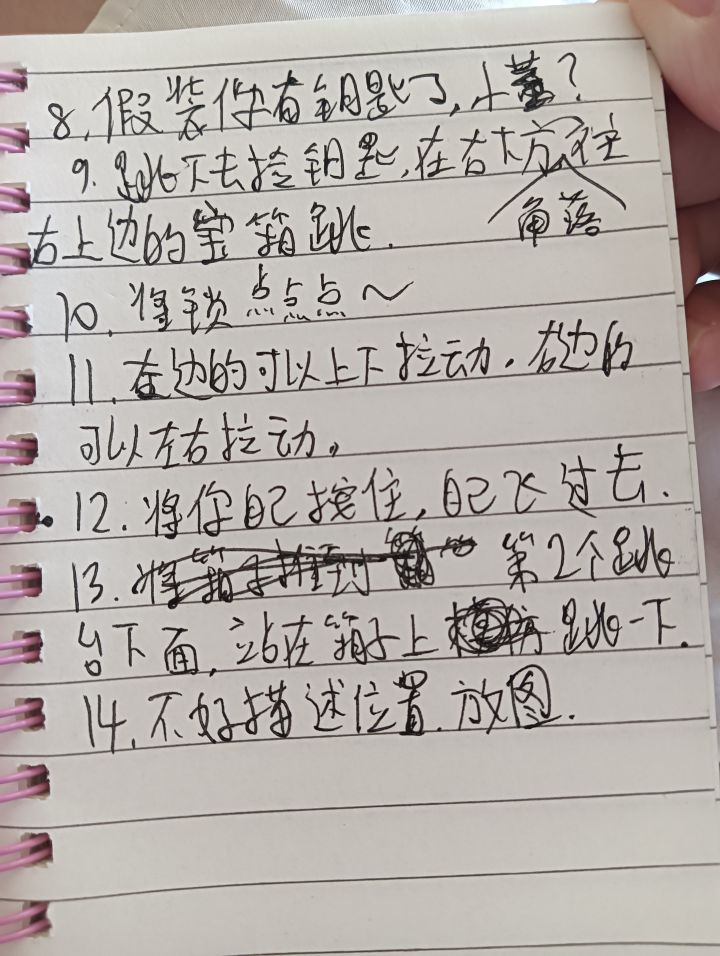 8. 假装你有钥匙了，小董？
9. 跳下去捡钥匙，在右下方角落往
右上边的宝箱跳.
10. 将锁点点点～
11. 左边的可以上下拉动，右边的
可以左右拉动。
12. 将你自己按住，自己飞过去.
13. 第2个跳
台下面，站在箱子上跳一下.
14. 不好描述位置. 放图.